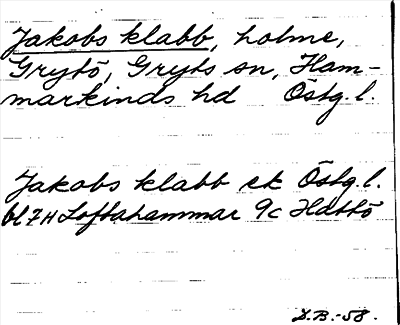 Jakobs klabb, holme,
Grytö, Gryts sn, Ham-
markinds hd Östg. l.
Jakobs klabb ek Östg. l.
bl 7H Loftahammar 9c Hättö
D.B.-58.